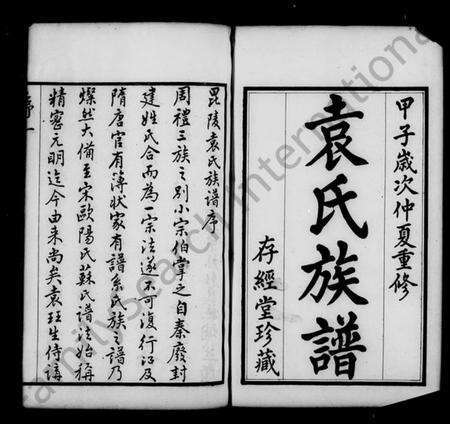 甲子歲次仲夏重修
袁氏族譜
存經堂珍藏
毘陵袁氏族譜序
周禮三族之別小宗伯掌之自秦廢封
建姓氏合而為一宗法遂不可復行江及
隋唐官有簿狀家有譜系氏族之譜乃
燦然大備至宋歐陽氏蘇氏譜法始稱
精密元明迄今由来尚矣袁珏生侍講
序一
FamilySearch International